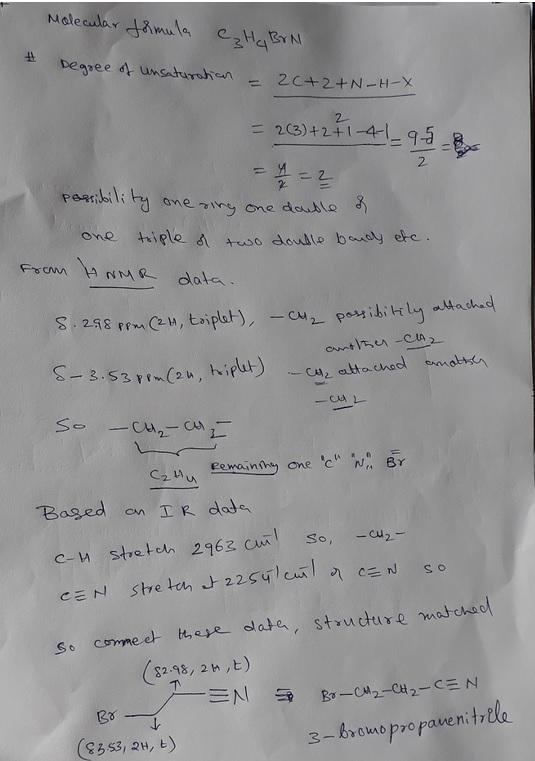 Molecular formula C3H4BrN
# Degree of unsaturation = 2C+2+N-H-X
2
= 2(3)+2+1-4-1 = 9-5
2 2
= 4/2 = 2
possibility one ring one double or
one triple or two double bonds etc.
From HNMR data.
δ. 2.98 ppm (2H, triplet), -CH2 possibitily attached
another -CH2
δ-3.53 ppm (2H, triplet) -CH2 attached another
-CH2
So -CH2-CH2-
C2H4 Remaining one "C" "N" Br
Based on IR data
C-H stretch 2963 cm-1 so, -CH2-
C≡N stretch 2254 cm-1 of C≡N so
So connect these data, structure matched
(δ2.98, 2H, t)
Br ≡N ⇒ Br-CH2-CH2-C≡N
(δ3.53, 2H, t) 3-bromopropanenitrile